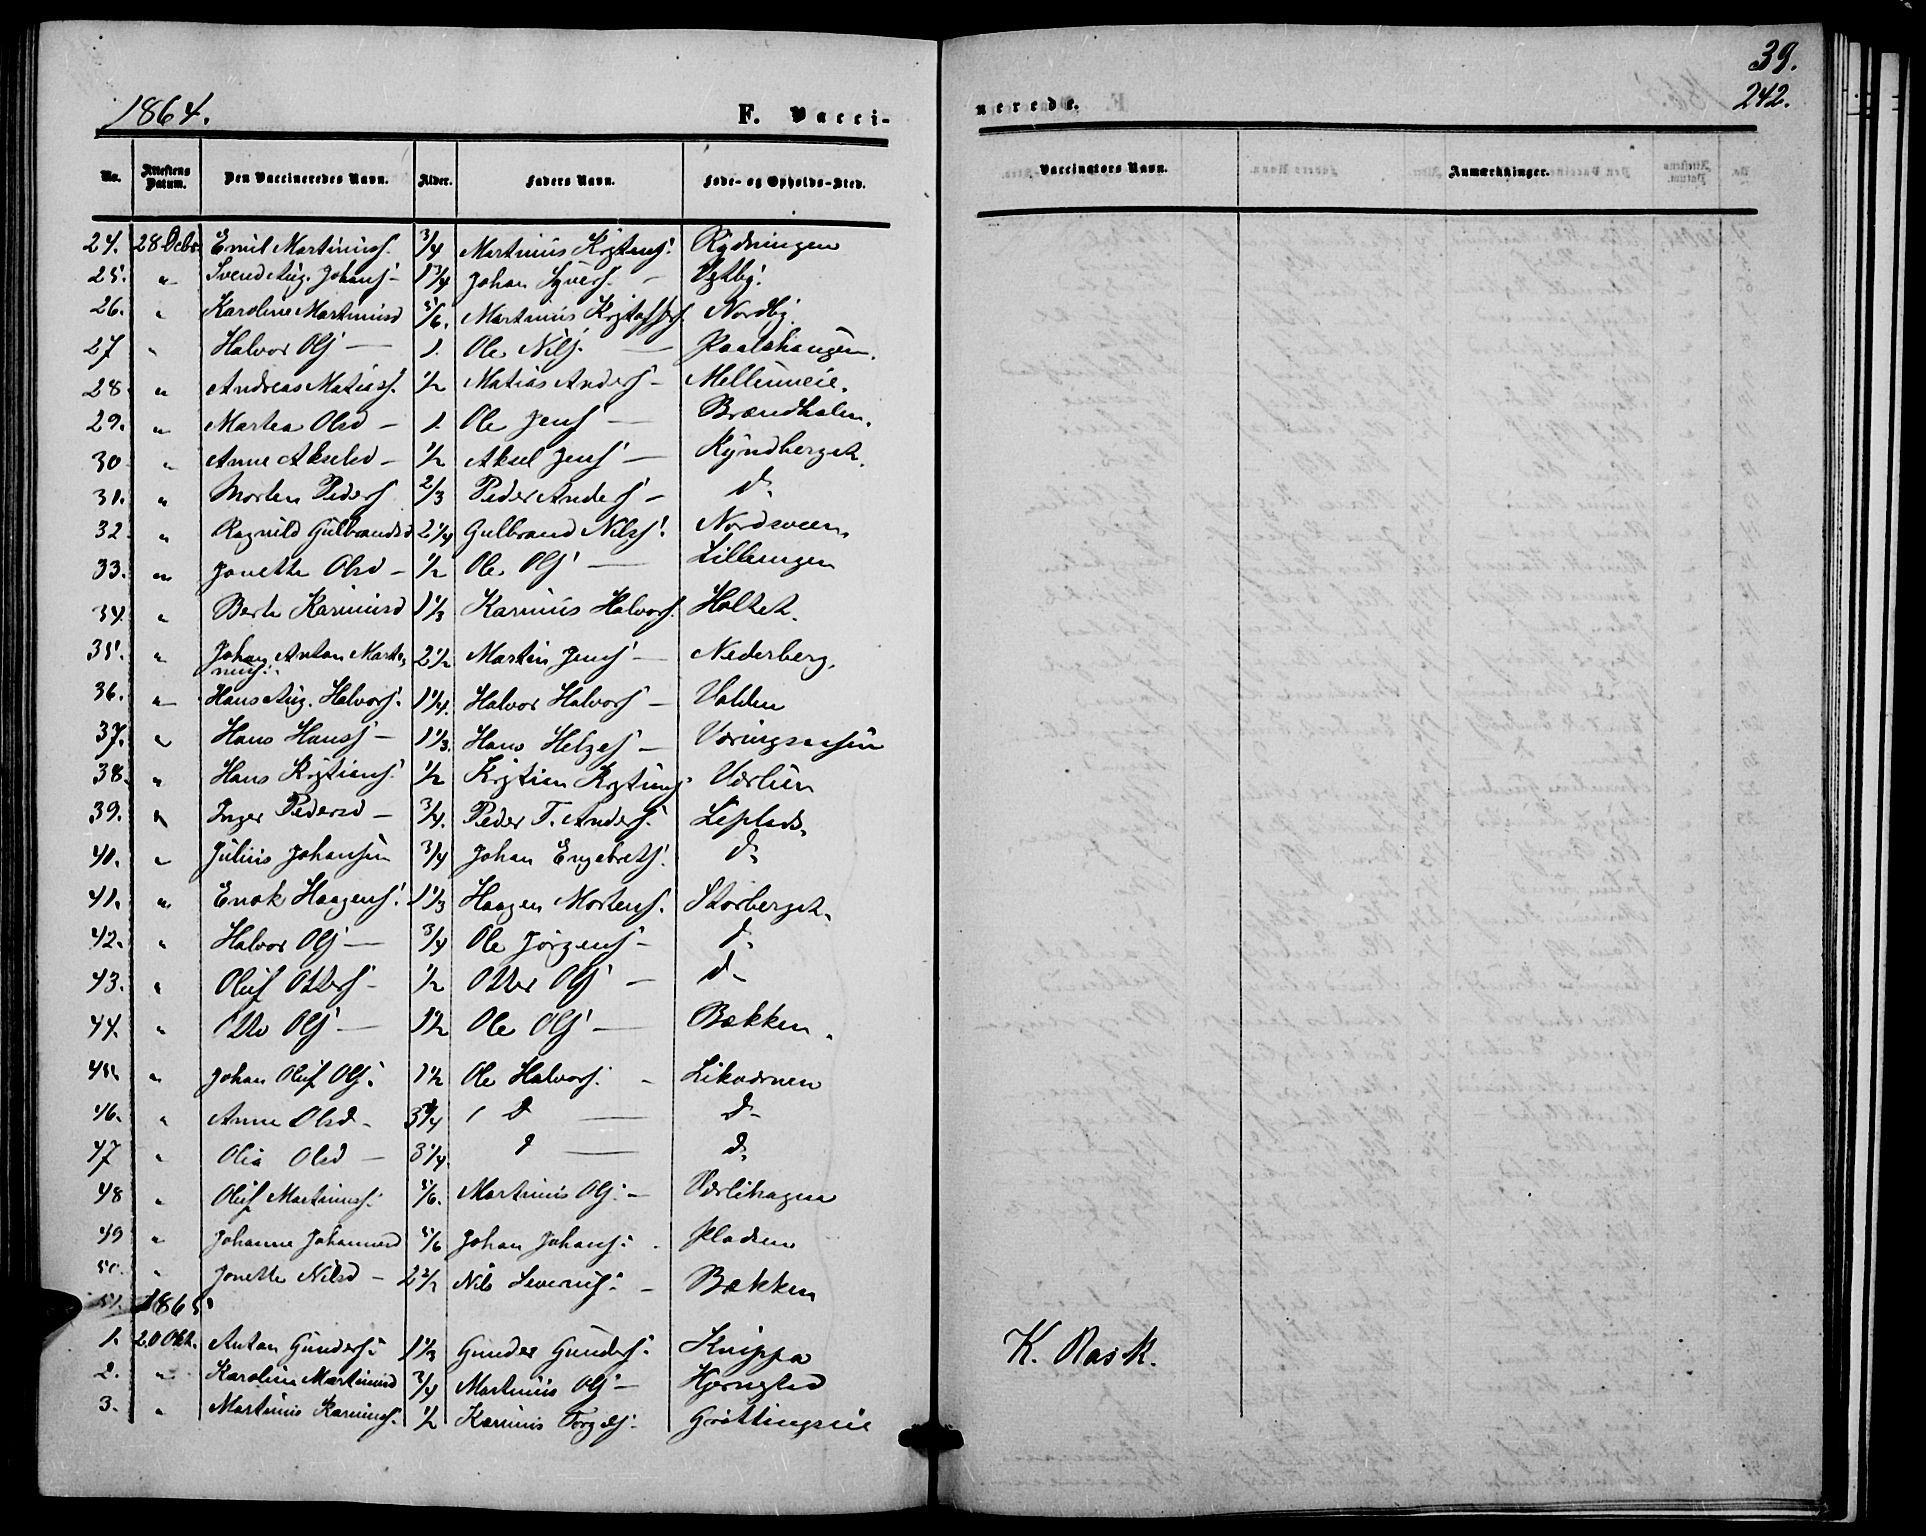 39.
1864. F. Vacci-nerede. 242.
No. Attestens Datum. Den Vaccineredes Navn. Alder. Faders Navn. Føde- og Opholds-Sted. Vaccinators Navn. Anmærkninger.
24. 28 Octb. Emil Martinuss. 3/4 Martinus Kristens. Rydningen
25. " Svend Aug. Johans. - 1 3/4 Johan Syvers. - Vestby.
26. " Karoline Martinusd 5/6. Martinus Kristoffers. Nordby.
27 " Halvor Ols. - 1. Ole Nils. - Paalshaugen.
28 " Andreas Matiass. 1/2 Matias Anders. - Mellumeie.
29. " Martea Olsd - 1. Ole Jens. - Brændhalen.
30 " Anne Akselsd - 1/2 Aksel Jens. - Kyndberget.
31. " Morten Peders. 2/3 Peder Anders. - d.
32. " Ragnild Gulbrandsd 2 1/4 Gulbrand Nilss. Nordsveen
33. " Jonette Olsd - 1/2 Ole Ols. - Lilleengen
34. " Berte Karinusd 1 1/3 Karinus Halvors. Holtet.
35. " Johan Anton Marti-
nus. 2 1/2 Martin Jens. - Nederberg.
36. " Hans Aug. Halvors. 1 1/4. Halvor Halvors. - Volden
37. " Hans Hanss. - 1 1/3. Hans Helges. - Væringsaasen
38. " Hans Kristians. 1/2 Kristian Kristians. Værlien
39. " Inger Pedersd - 3/4. Peder T. Anders. Lieplads.
40. " Julius Johansen 3/4 Johan Engebrets. d.
41. " Enok Haagens. 1 1/3 Haagen Mortens. Storberget.
42. " Halvor Ols. - 3/4 Ole Jörgens. - d.
43. " Oluf Otters. - 1/2 Otter Ols. - d.
44. " Otto Ols. - 1 1/2 Ole Ols. - Bækken.
45. " Johan Oluf Ols. 1 1/2 Ole Halvors. - Likværnen
46. " Anne Olsd - 3 3/4 d - d.
47 " Olia Olsd - 3 1/4. d - d.
48 " Oluf Martinuss. 5/6. Martinus Ols. - Værlihagen
49 " Johanne Johannesd 5/6 Johan Johans. - Pladsen
50. " Jonette Nilsd - 2 1/2 Nils Severins. - Bækken
51. 1865.
1. 20 Okt. Anton Gunders. 1 1/3 Gunder Gunders. Knippa K. Rask.
2. " Karoline Martinusd 3/4 Martinus Ols. - Hjernstad
3. " Martinus Karinuss. 1/2 Karinus Torgels. Gröttingseie